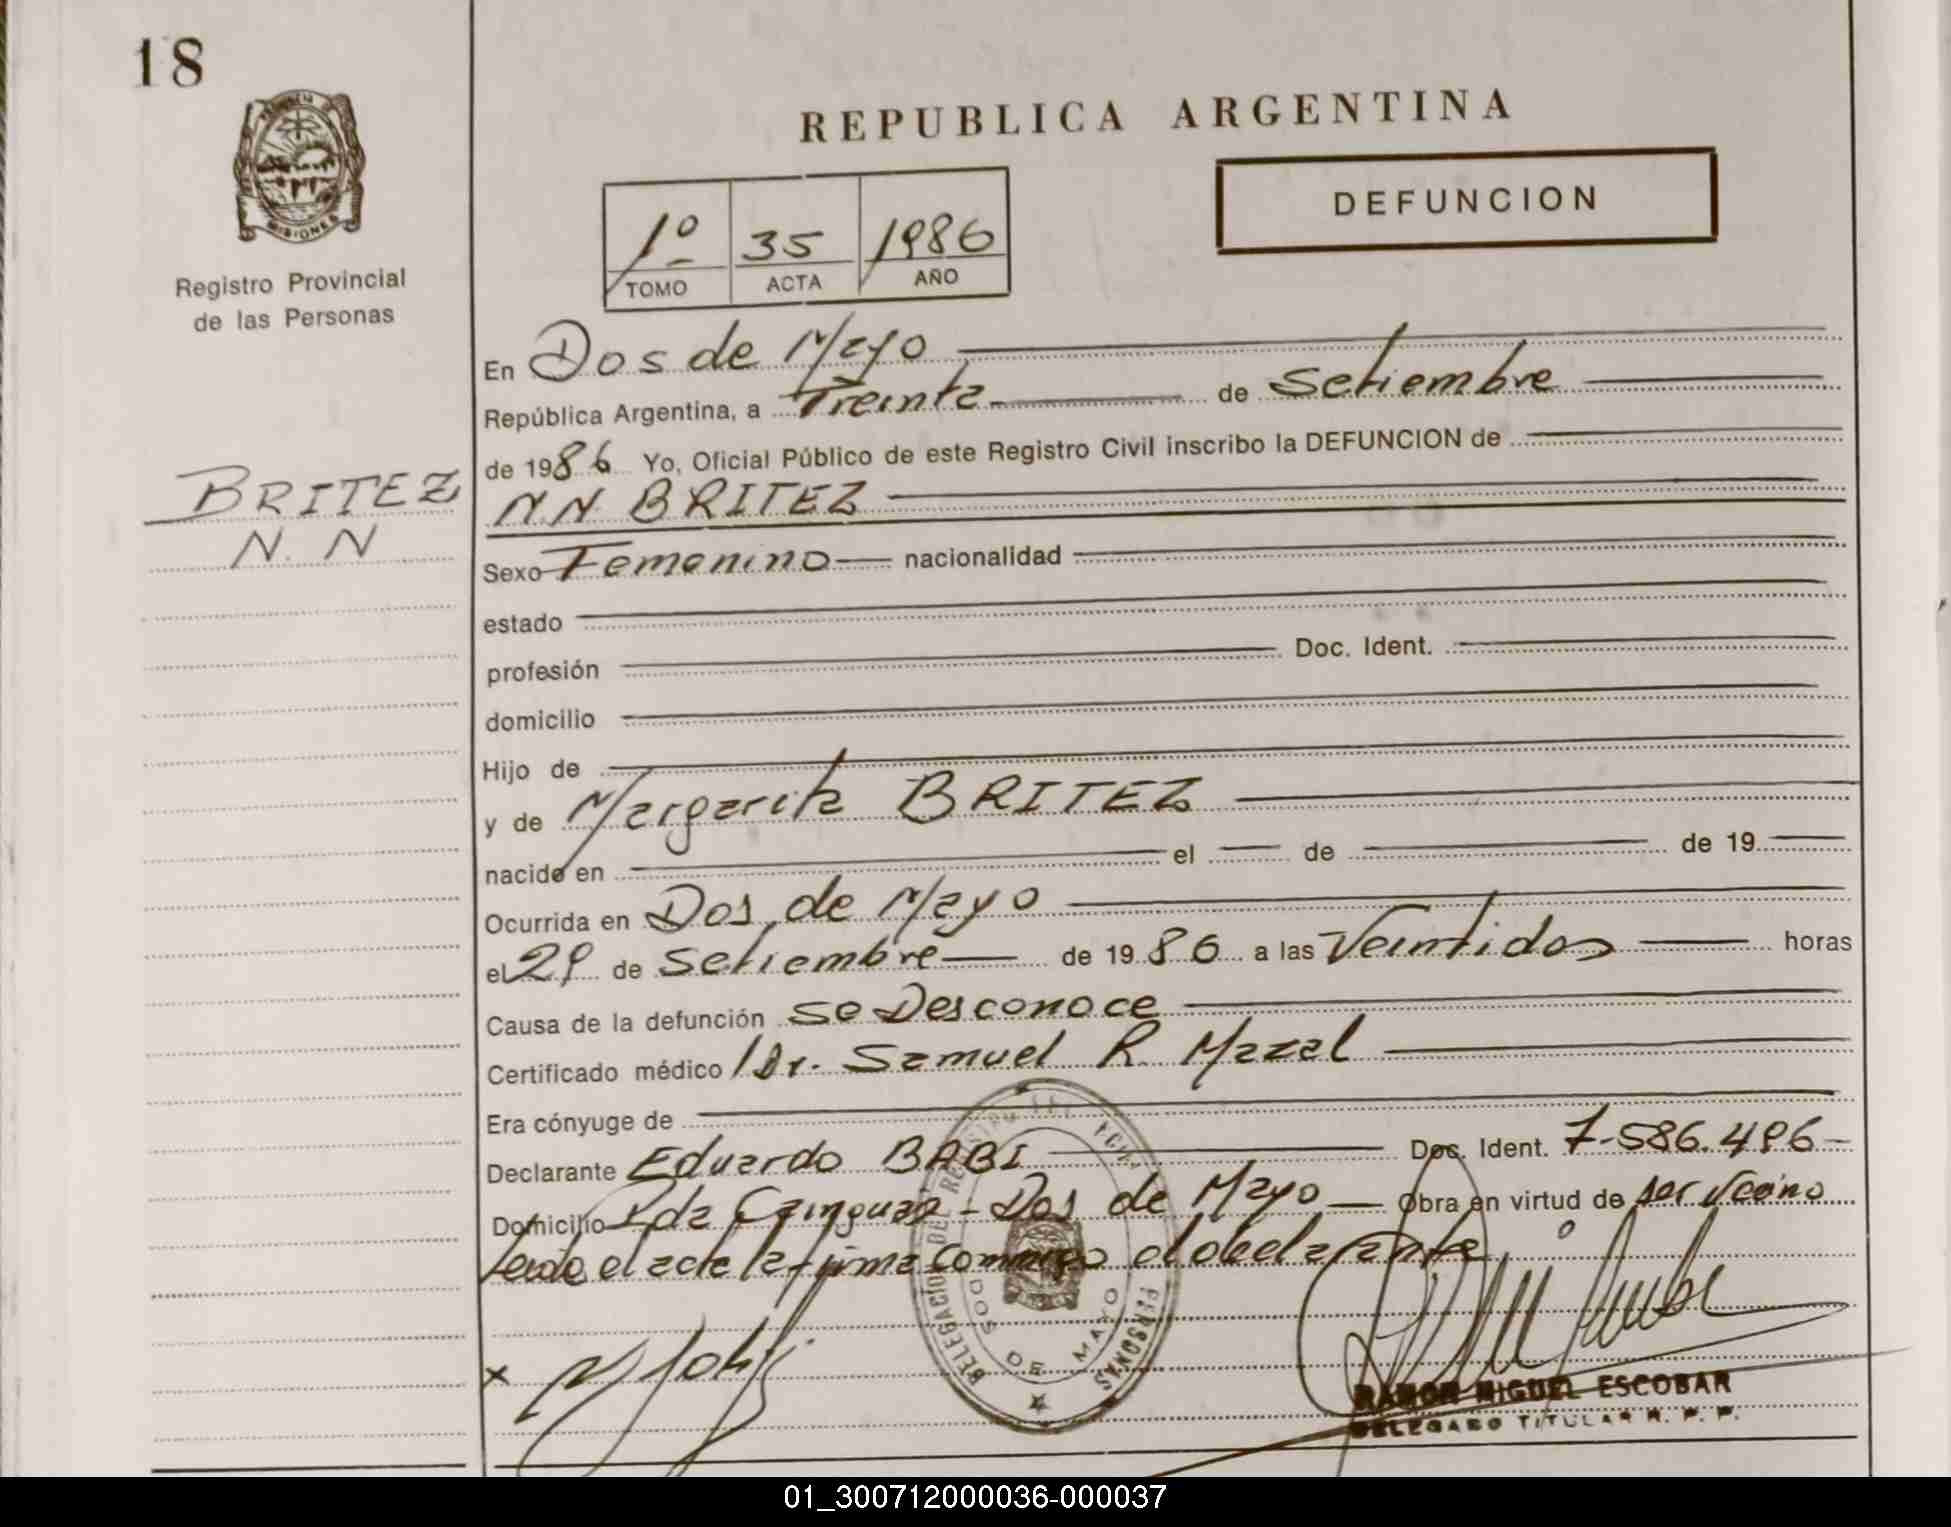 18
PROVINCIA DE
MISIONES
Registro Provincial
de las Personas
BRITEZ
N. N
REPUBLICA ARGENTINA
DEFUNCION
1º 35 1986
TOMO ACTA AÑO
En Dos de Mayo
República Argentina, a Treinta de Setiembre
de 1986 Yo, Oficial Público de este Registro Civil inscribo la DEFUNCION de
NN BRITEZ
Sexo Femenino nacionalidad
estado
profesión Doc. Ident.
domicilio
Hijo de
y de Margarita BRITEZ
nacido en el de de 19
Ocurrida en Dos de Mayo
el 29 de Setiembre de 1986 a las Veintidos horas
Causa de la defunción se Desconoce
Certificado médico Dr. Samuel R. Mazal
Era cónyuge de
Declarante Eduardo BABI Doc. Ident. 7.586.496
Domicilio Pda Cainguas - Dos de Mayo Obra en virtud de ser Vecino
Leida el acta la firma conmigo el declarante
DELEGACION DEL REGISTRO PERSONAS
DOS DE MAYO
x
RAMON MIGUEL ESCOBAR
DELEGADO TITULAR R. P. P.
01_300712000036-000037